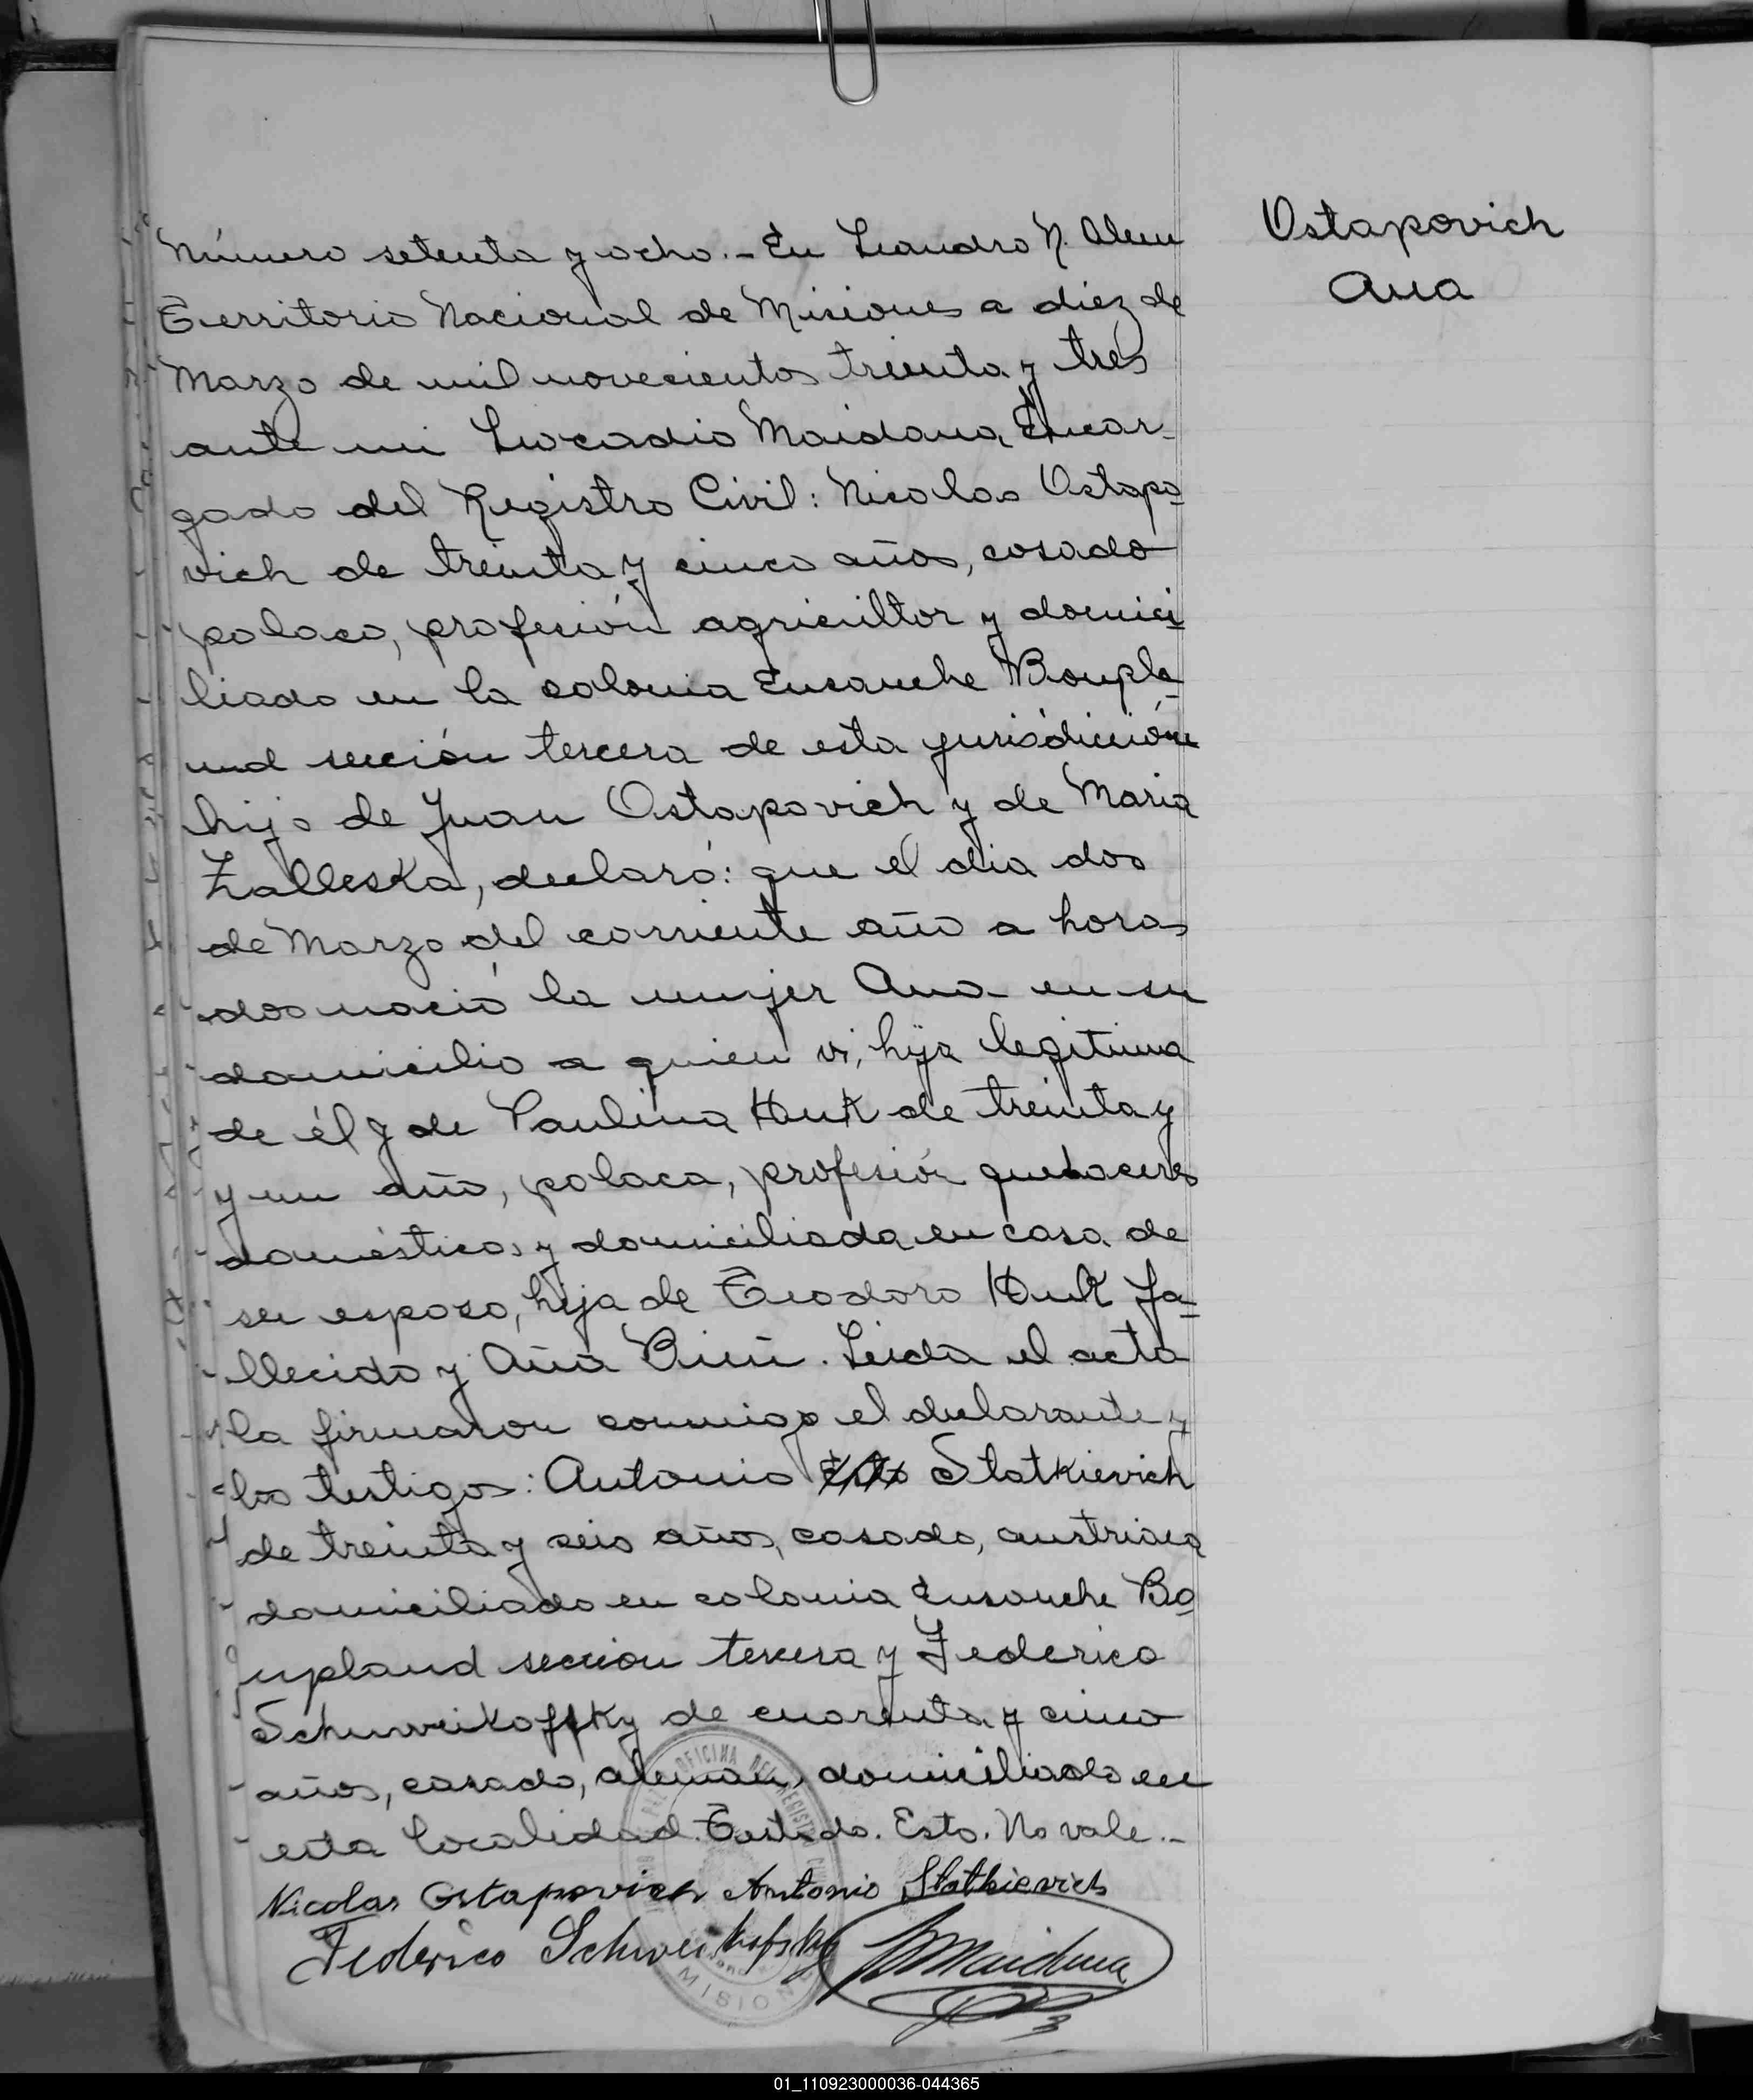 Ostapovich
Ana
Número setenta y ocho.- En Leandro N. Alem
Territorio Nacional de Misiones a diez de
Marzo de mil novecientos treinta y tres
ante mi Leocadio Maidana Encar-
gado del Registro Civil: Nicolas Ostapo-
vich de treinta y cinco años, casado
polaco, profesión agricultor y domici-
liado en la colonia Ensanche Bonpla-
nd sección tercera de esta jurisdicción
hijo de Juan Ostapovich y de Maria
Zalleska, declaró: que el dia dos
de Marzo del corriente año a horas
dos nació la mujer Ana en su
domicilio a quien vi, hija legitima
de él y de Paulina Huk de treinta y
y un año, polaca, profesión quehaceres
domésticos y domiciliada en casa de
su esposo, hija de Teodoro Huk fa-
llecido y Ana. Leida el acta
la firmaron conmigo el declarante y
los testigos: Antonio Esto Statkievich
de treinta y seis años, casado, austriaco
domiciliado en colonia Ensanche Bo
npland seccion tercera y Federico
Schwveikoffky de cuarenta y cinco
años, casado, aleman, domiciliado en
esta localidad. Testado. Esto. No vale.-
Nicolas Ostapovich Antonio Statkievich
Federico Schweikofsky Maidana
OFICINA DEL REGISTRO CIVIL
MISIONES
01_110923000036-044365